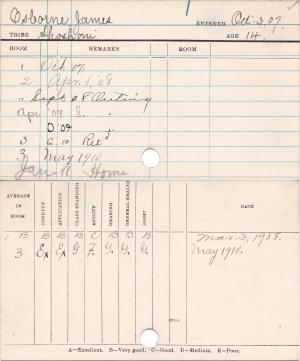 Osborne, James ENTERED Oct. 3, 07.
TRIBE Shoshoni AGE 14.
ROOM REMARKS ROOM
1 Oct '07
2 Apr. 1, '08
" Sept. 08 Outing
Apr '09 8. "
D '09
3 10 Ret'd
3 May 1910
Jan Home
AVERAGE IN ROOM CONDUCT APPLICATION CLASS STANDING ABILITY BEARING GENERAL HEALTH DATE
1 B B B B C B B B Mar. 3, 1908.
3 Ex Ex G F. G. G. G. May 1910.
A—Excellent. B—Very good. C—Good. D—Medium. E—Poor.